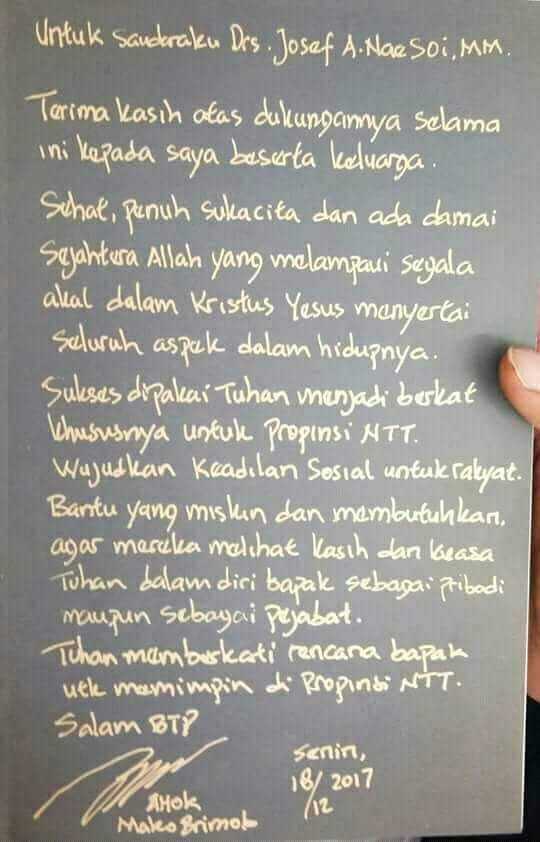 Untuk Saudaraku Drs. Josef A. Nae Soi, MM.
Terima kasih atas dukungannya selama
ini kepada saya beserta keluarga.
Sehat, penuh sukacita dan ada damai
Sejahtera Allah yang melampaui segala
akal dalam Kristus Yesus menyertai
seluruh aspek dalam hidupnya.
Sukses dipakai Tuhan menjadi berkat
khususnya untuk Propinsi NTT.
Wujudkan Keadilan Sosial untuk rakyat.
Bantu yang miskin dan membutuhkan,
agar mereka melihat kasih dan kuasa
Tuhan dalam diri bapak sebagai pribadi
maupun sebagai pejabat.
Tuhan memberkati rencana bapak
utk memimpin di Propinsi NTT.
Salam BTP
Senin,
18/12 2017
AHok
Mako Brimob